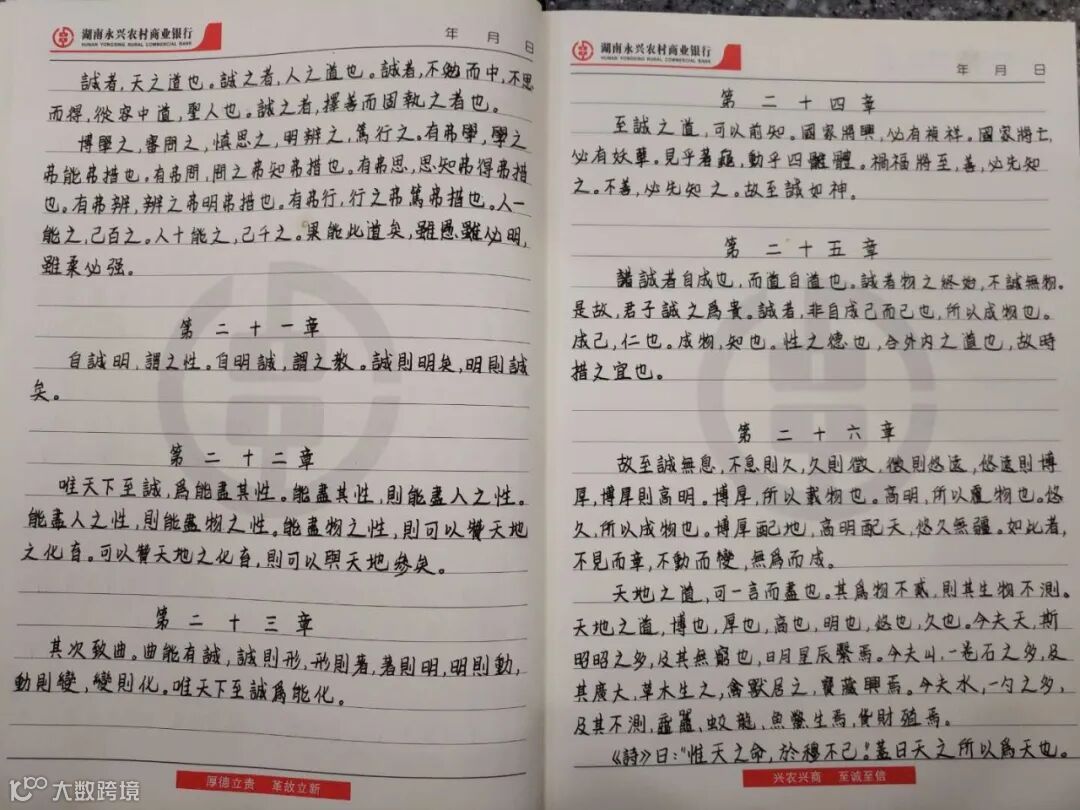 湖南永兴农村商业银行
HUNAN YONGXING RURAL COMMERCIAL BANK
年 月 日
誠者,天之道也。誠之者,人之道也。誠者,不勉而中,不思
而得,從容中道,聖人也。誠之者,擇善而固執之者也。
博學之,審問之,慎思之,明辨之,篤行之。有弗學,學之
弗能弗措也。有弗問,問之弗知弗措也。有弗思,思知弗得弗措
也。有弗辨,辨之弗明弗措也。有弗行,行之弗篤弗措也。人一
能之,己百之。人十能之,己千之。果能此道矣,雖愚雖必明,
雖柔必强。
第二十一章
自誠明,謂之性。自明誠,謂之教。誠則明矣,明則誠
矣。
第二十二章
唯天下至誠,爲能盡其性。能盡其性,則能盡人之性。
能盡人之性,則能盡物之性。能盡物之性,則可以贊天地
之化育。可以贊天地之化育,則可以與天地參矣。
第二十三章
其次致曲。曲能有誠,誠則形,形則著,著則明,明則動,
動則變,變則化。唯天下至誠爲能化。
厚德立贵 革故立新
大数跨境
湖南永兴农村商业银行
HUNAN YONGXING RURAL COMMERCIAL BANK
年 月 日
第二十四章
至誠之道,可以前知。國家將興,必有禎祥。國家將亡,
必有妖孽。見乎蓍龜,動乎四體。禍福將至,善,必先知
之。不善,必先知之。故至誠如神。
第二十五章
誠者自成也,而道自道也。誠者物之終始,不誠無物。
是故,君子誠之爲貴。誠者,非自成己而已也,所以成物也。
成己,仁也。成物,知也。性之德也,合外内之道也,故時
措之宜也。
第二十六章
故至誠無息,不息則久,久則徵,徵則悠遠,悠遠則博
厚,博厚則高明。博厚,所以載物也。高明,所以覆物也。悠
久,所以成物也。博厚配地,高明配天,悠久無疆。如此者,
不見而章,不動而變,無爲而成。
天地之道,可一言而盡也。其爲物不貳,則其生物不測。
天地之道,博也,厚也,高也,明也,悠也,久也。今夫天,斯
昭昭之多,及其無窮也,日月星辰繫焉。今夫山,一卷石之多,及
其廣大,草木生之,禽獸居之,寶藏興焉。今夫水,一勺之多,
及其不測,黿鼉,蛟龍,魚鱉生焉,貨財殖焉。
《詩》曰:"惟天之命,於穆不已!蓋曰天之所以爲天也。
兴农兴商 至诚至信